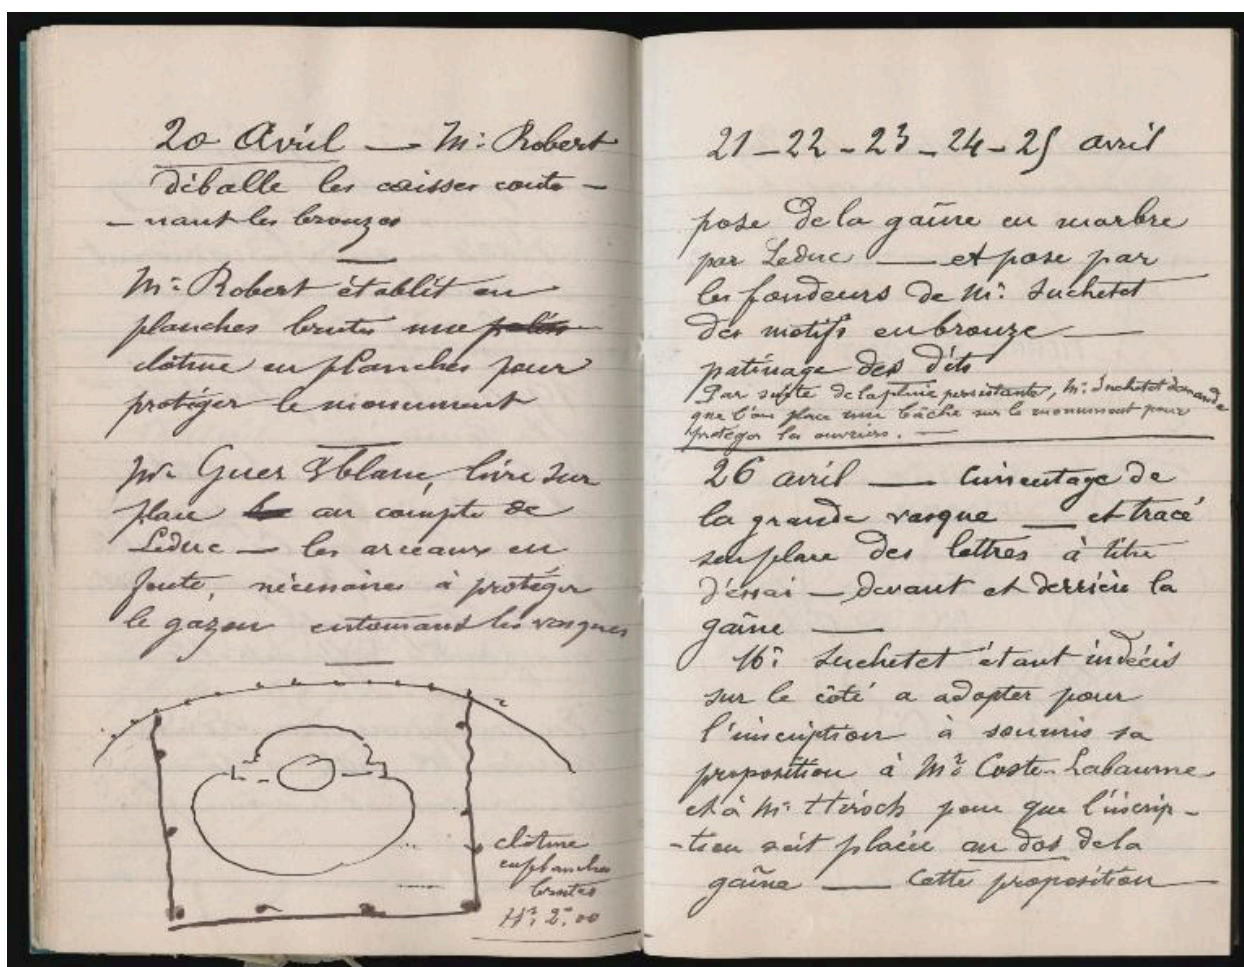 20 Avril — Mr Robert
déballe les caisses conte-
-nant les bronzes
Mr Robert établit en
planches brutes une
clôture en planches pour
protéger le monument
Mr Guer & blanc, livre sur
place au compte de
Leduc — les arceaux en
fonte, nécessaires à protéger
le gazon entourant les vasques
clôture
en planches
brutes
Hr 2m,00
21 – 22 – 23 – 24 – 25 avril
pose de la gaîne en marbre
par Leduc — et pose par
les fondeurs de Mr Suchetet
des motifs en bronze —
patinage des dits
Par suite de la pluie persistante, Mr Suchetet demande
que l'on place une bâche sur le monument pour
protéger les ouvriers. —
26 avril — Cimentage de
la grande vasque — et tracé
sur place des lettres à titre
d'essai — devant et derrière la
gaîne —
Mr Suchetet étant indécis
sur le côté a adopter pour
l'inscription à soumis sa
proposition à Mr Coste-Labaume
et à Mr Hirsch pour que l'inscrip-
-tion soit placée au dos de la
gaîne — Cette proposition —